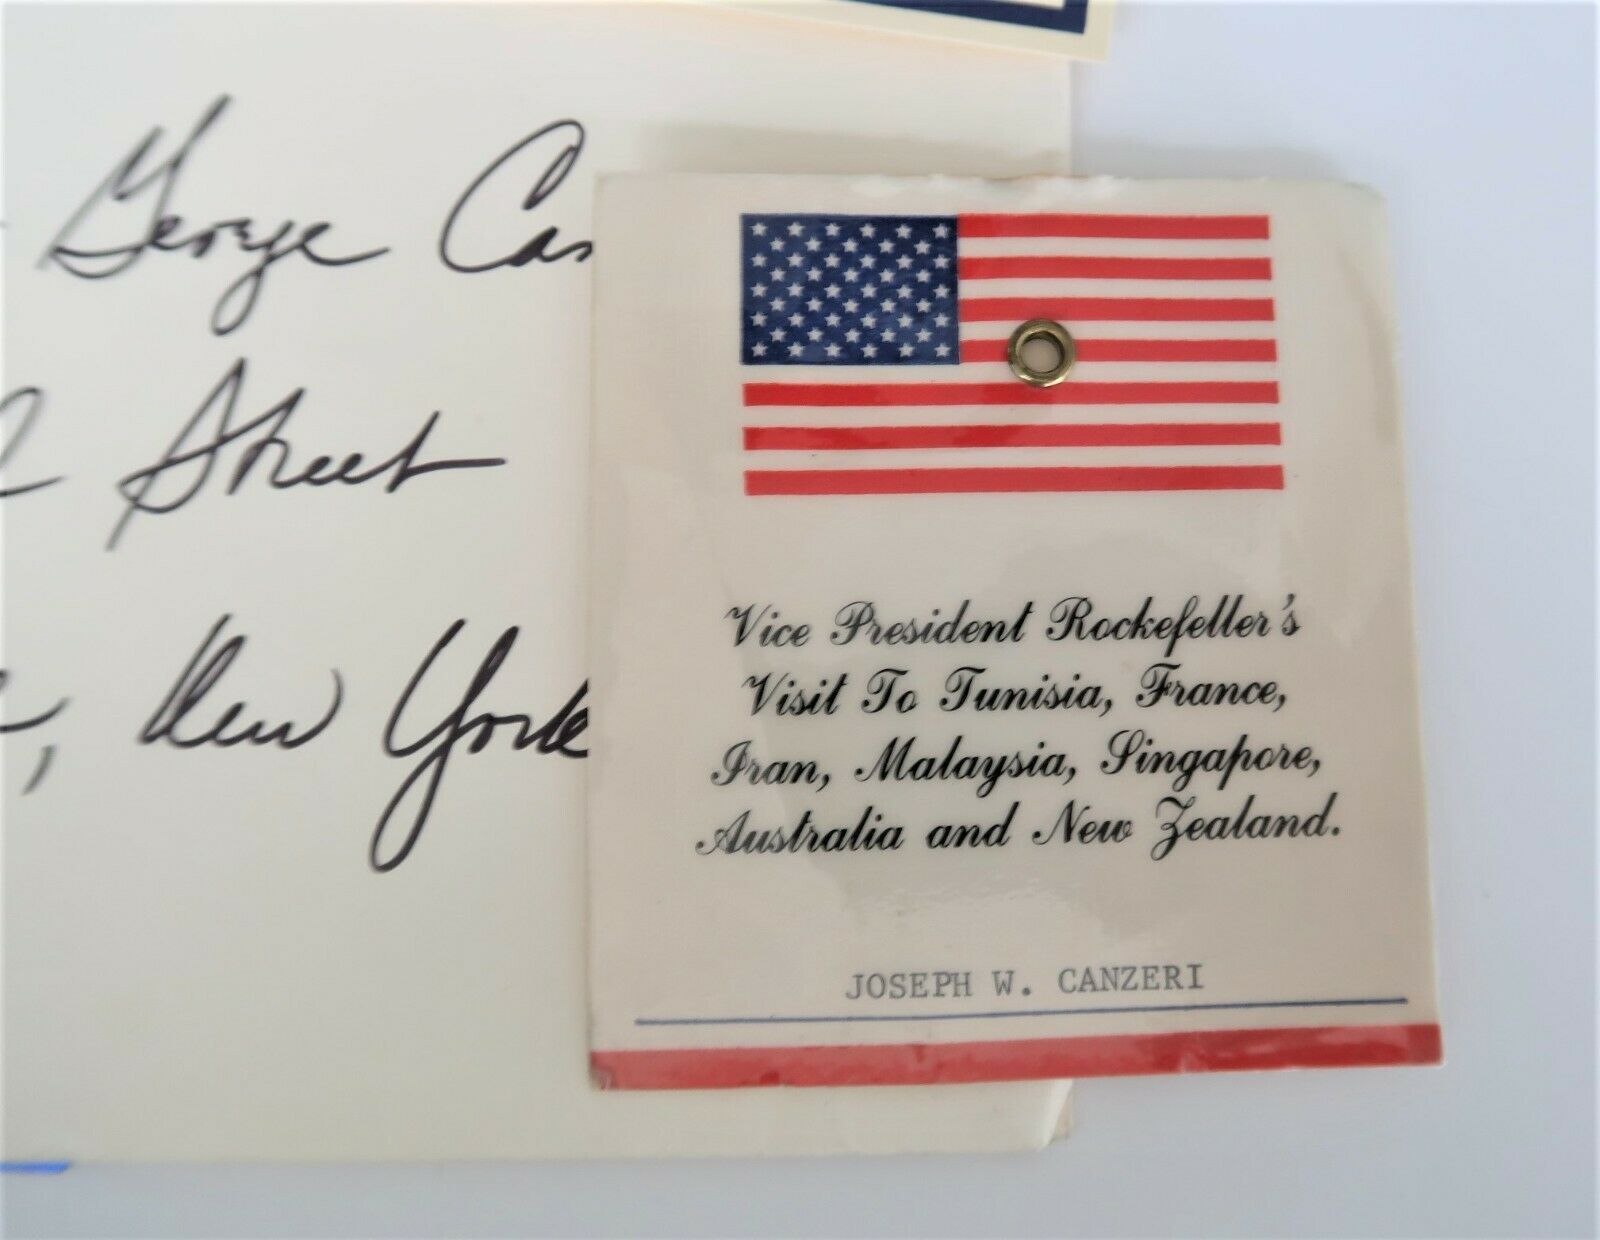 George Can
Street
, New York
Vice President Rockefeller's
Visit To Tunisia, France,
Iran, Malaysia, Singapore,
Australia and New Zealand.
JOSEPH W. CANZERI